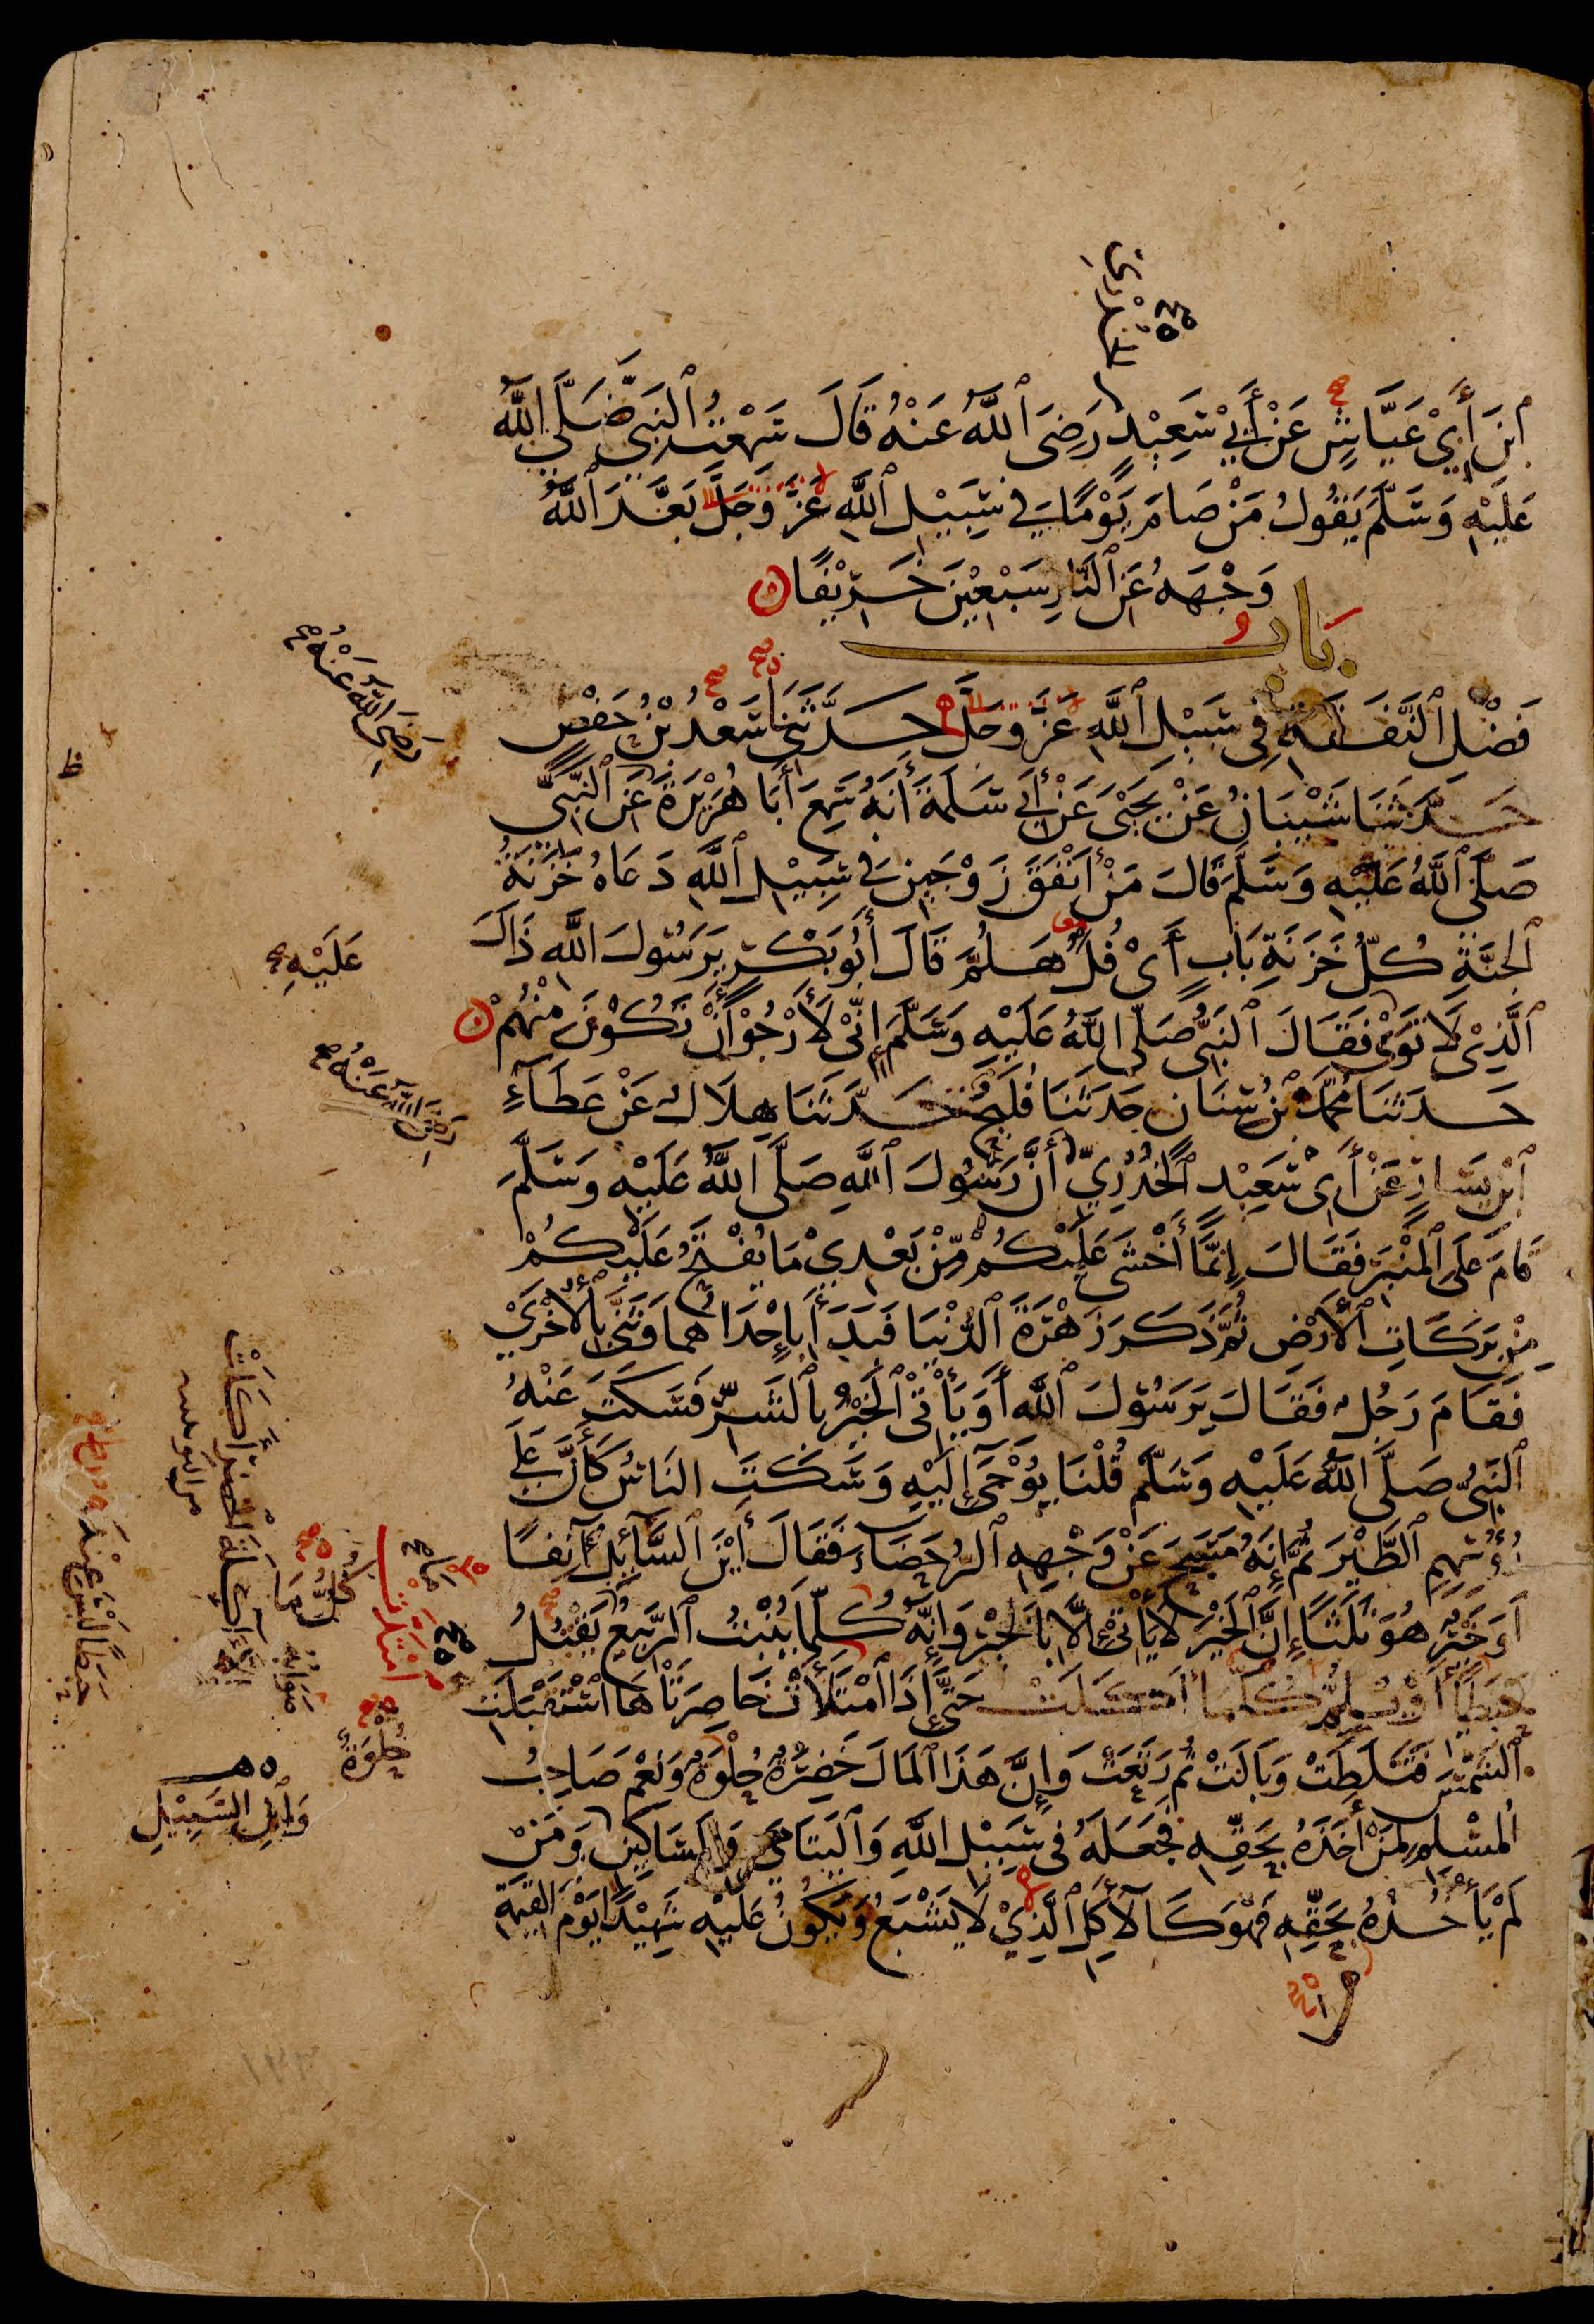 الخدري
ابْنَ أَبِي عَيَّاشٍ عَنْ أَبِي سَعِيْدٍ رَضِيَ ٱللَّهُ عَنْهُ قَالَ سَمِعْتُ ٱلنَّبِيَّ صَلَّى ٱللَّهُ
عَلَيْهِ وَسَلَّمَ يَقُولُ مَنْ صَامَ يَوْمًا فِي سَبِيْلِ ٱللَّهِ عَزَّ وَجَلَّ بَعَّدَ ٱللَّهُ
وَجْهَهُ عَنِ ٱلنَّارِ سَبْعِيْنَ خَرِيْفًا
بَابُ
فَضْلِ ٱلنَّفَقَةِ فِي سَبِيْلِ ٱللَّهِ عَزَّ وَجَلَّ حَدَّثَنِي سَعْدُ بْنُ حَفْصٍ
حَدَّثَنَا شَيْبَانُ عَنْ يَحْيَى عَنْ أَبِي سَلَمَةَ أَنَّهُ سَمِعَ أَبَا هُرَيْرَةَ عَنِ ٱلنَّبِيِّ
صَلَّى ٱللَّهُ عَلَيْهِ وَسَلَّمَ قَالَ مَنْ أَنْفَقَ زَوْجَيْنِ فِي سَبِيْلِ ٱللَّهِ دَعَاهُ خَزَنَةُ
ٱلْجَنَّةِ كُلُّ خَزَنَةِ بَابٍ أَيْ فُلُ هَلُمَّ قَالَ أَبُو بَكْرٍ يَرَسُولَ اللَّهِ ذَاكَ
ٱلَّذِيْ لَا تَوَى فَقَالَ ٱلنَّبِيُّ صَلَّى اللَّهُ عَلَيْهِ وَسَلَّمَ إِنِّيْ لَأَرْجُوْ أَنْ تَكُوْنَ مِنْهُمْ
حَدَّثَنَا مُحَمَّدُ بْنُ سِنَانٍ حَدَّثَنَا فُلَيْحٌ حَدَّثَنَا هِلَالٌ عَنْ عَطَاءِ
ٱبْنِ يَسَارٍ عَنْ أَبِيْ سَعِيْدٍ ٱلْخُدْرِيِّ أَنَّ رَسُوْلَ ٱللَّهِ صَلَّى اللَّهُ عَلَيْهِ وَسَلَّمَ
قَامَ عَلَى ٱلْمِنْبَرِ فَقَالَ إِنَّمَا أَخْشَى عَلَيْكُمْ مِنْ بَعْدِيْ مَا يُفْتَحُ عَلَيْكُمْ
مِنْ بَرَكَاتِ ٱلْأَرْضِ ثُمَّ ذَكَرَ زَهْرَةَ ٱلدُّنْيَا فَبَدَأَ بِإِحْدَاهُمَا وَثَنَّى بِٱلْأُخْرَى
فَقَامَ رَجُلٌ فَقَالَ يَرَسُوْلَ ٱللَّهِ أَوَ يَأْتِيْ ٱلْخَيْرُ بِٱلشَّرِّ فَسَكَتَ عَنْهُ
ٱلنَّبِيُّ صَلَّى ٱللَّهُ عَلَيْهِ وَسَلَّمَ قُلْنَا يُوْحَى إِلَيْهِ وَسَكَتَ النَّاسُ كَأَنَّ عَلَى
رُؤُسِهِمِ ٱلطَّيْرَ ثُمَّ إِنَّهُ مَسَحَ عَنْ وَجْهِهِ ٱلرُّحَضَاءَ فَقَالَ أَيْنَ ٱلسَّائِلُ آنِفًا
أَوَ خَيْرٌ هُوَ ثَلَثًا إِنَّ ٱلْخَيْرَ لَا يَأْتِيْ إِلَّا بِالْخَيْرِ وَإِنَّهُ كُلَّمَا يُنْبِتُ ٱلرَّبِيْعُ يَقْتُلُ
حَبَطًا أَوْ يُلِمُّ كُلَّمَا أَكَلَتْ حَتَّى إِذَا ٱمْتَلَأَتْ خَاصِرَتَاهَا ٱسْتَقْبَلَتِ
ٱلشَّمْسَ فَثَلَطَتْ وَبَالَتْ ثُمَّ رَتَعَتْ وَإِنَّ هَذَا ٱلْمَالَ خَضِرَةٌ حُلْوَةٌ وَنِعْمَ صَاحِبُ
ٱلْمُسْلِمِ لِمَنْ أَخَذَهُ بِحَقِّهِ فَجَعَلَهُ فِي سَبِيْلِ اللَّهِ وَٱلْيَتَامَى وَٱلْمَسَاكِيْنِ وَمَنْ
لَمْ يَأْخُذْهُ بِحَقِّهِ فَهْوَ كَالْآكِلِ ٱلَّذِيْ لَا يَشْبَعُ وَيَكُونُ عَلَيْهِ شَهِيْدًا يَوْمَ ٱلْقِيٰمَةِ
رَضِيَ اللَّهُ عَنْهُ
عَلَيْهِ
رَضِيَ اللَّهُ عَنْهُ
إِلَّا آكِلَةَ الْخَضِرِ أَكَلَتْ
كُلُّ مَا
صَوَابُهُ
امْتَدَّتْ
حَبَطًا لَيْسَ عِنْدَ
حُلْوَةٌ
وَابْنِ السَّبِيْلِ